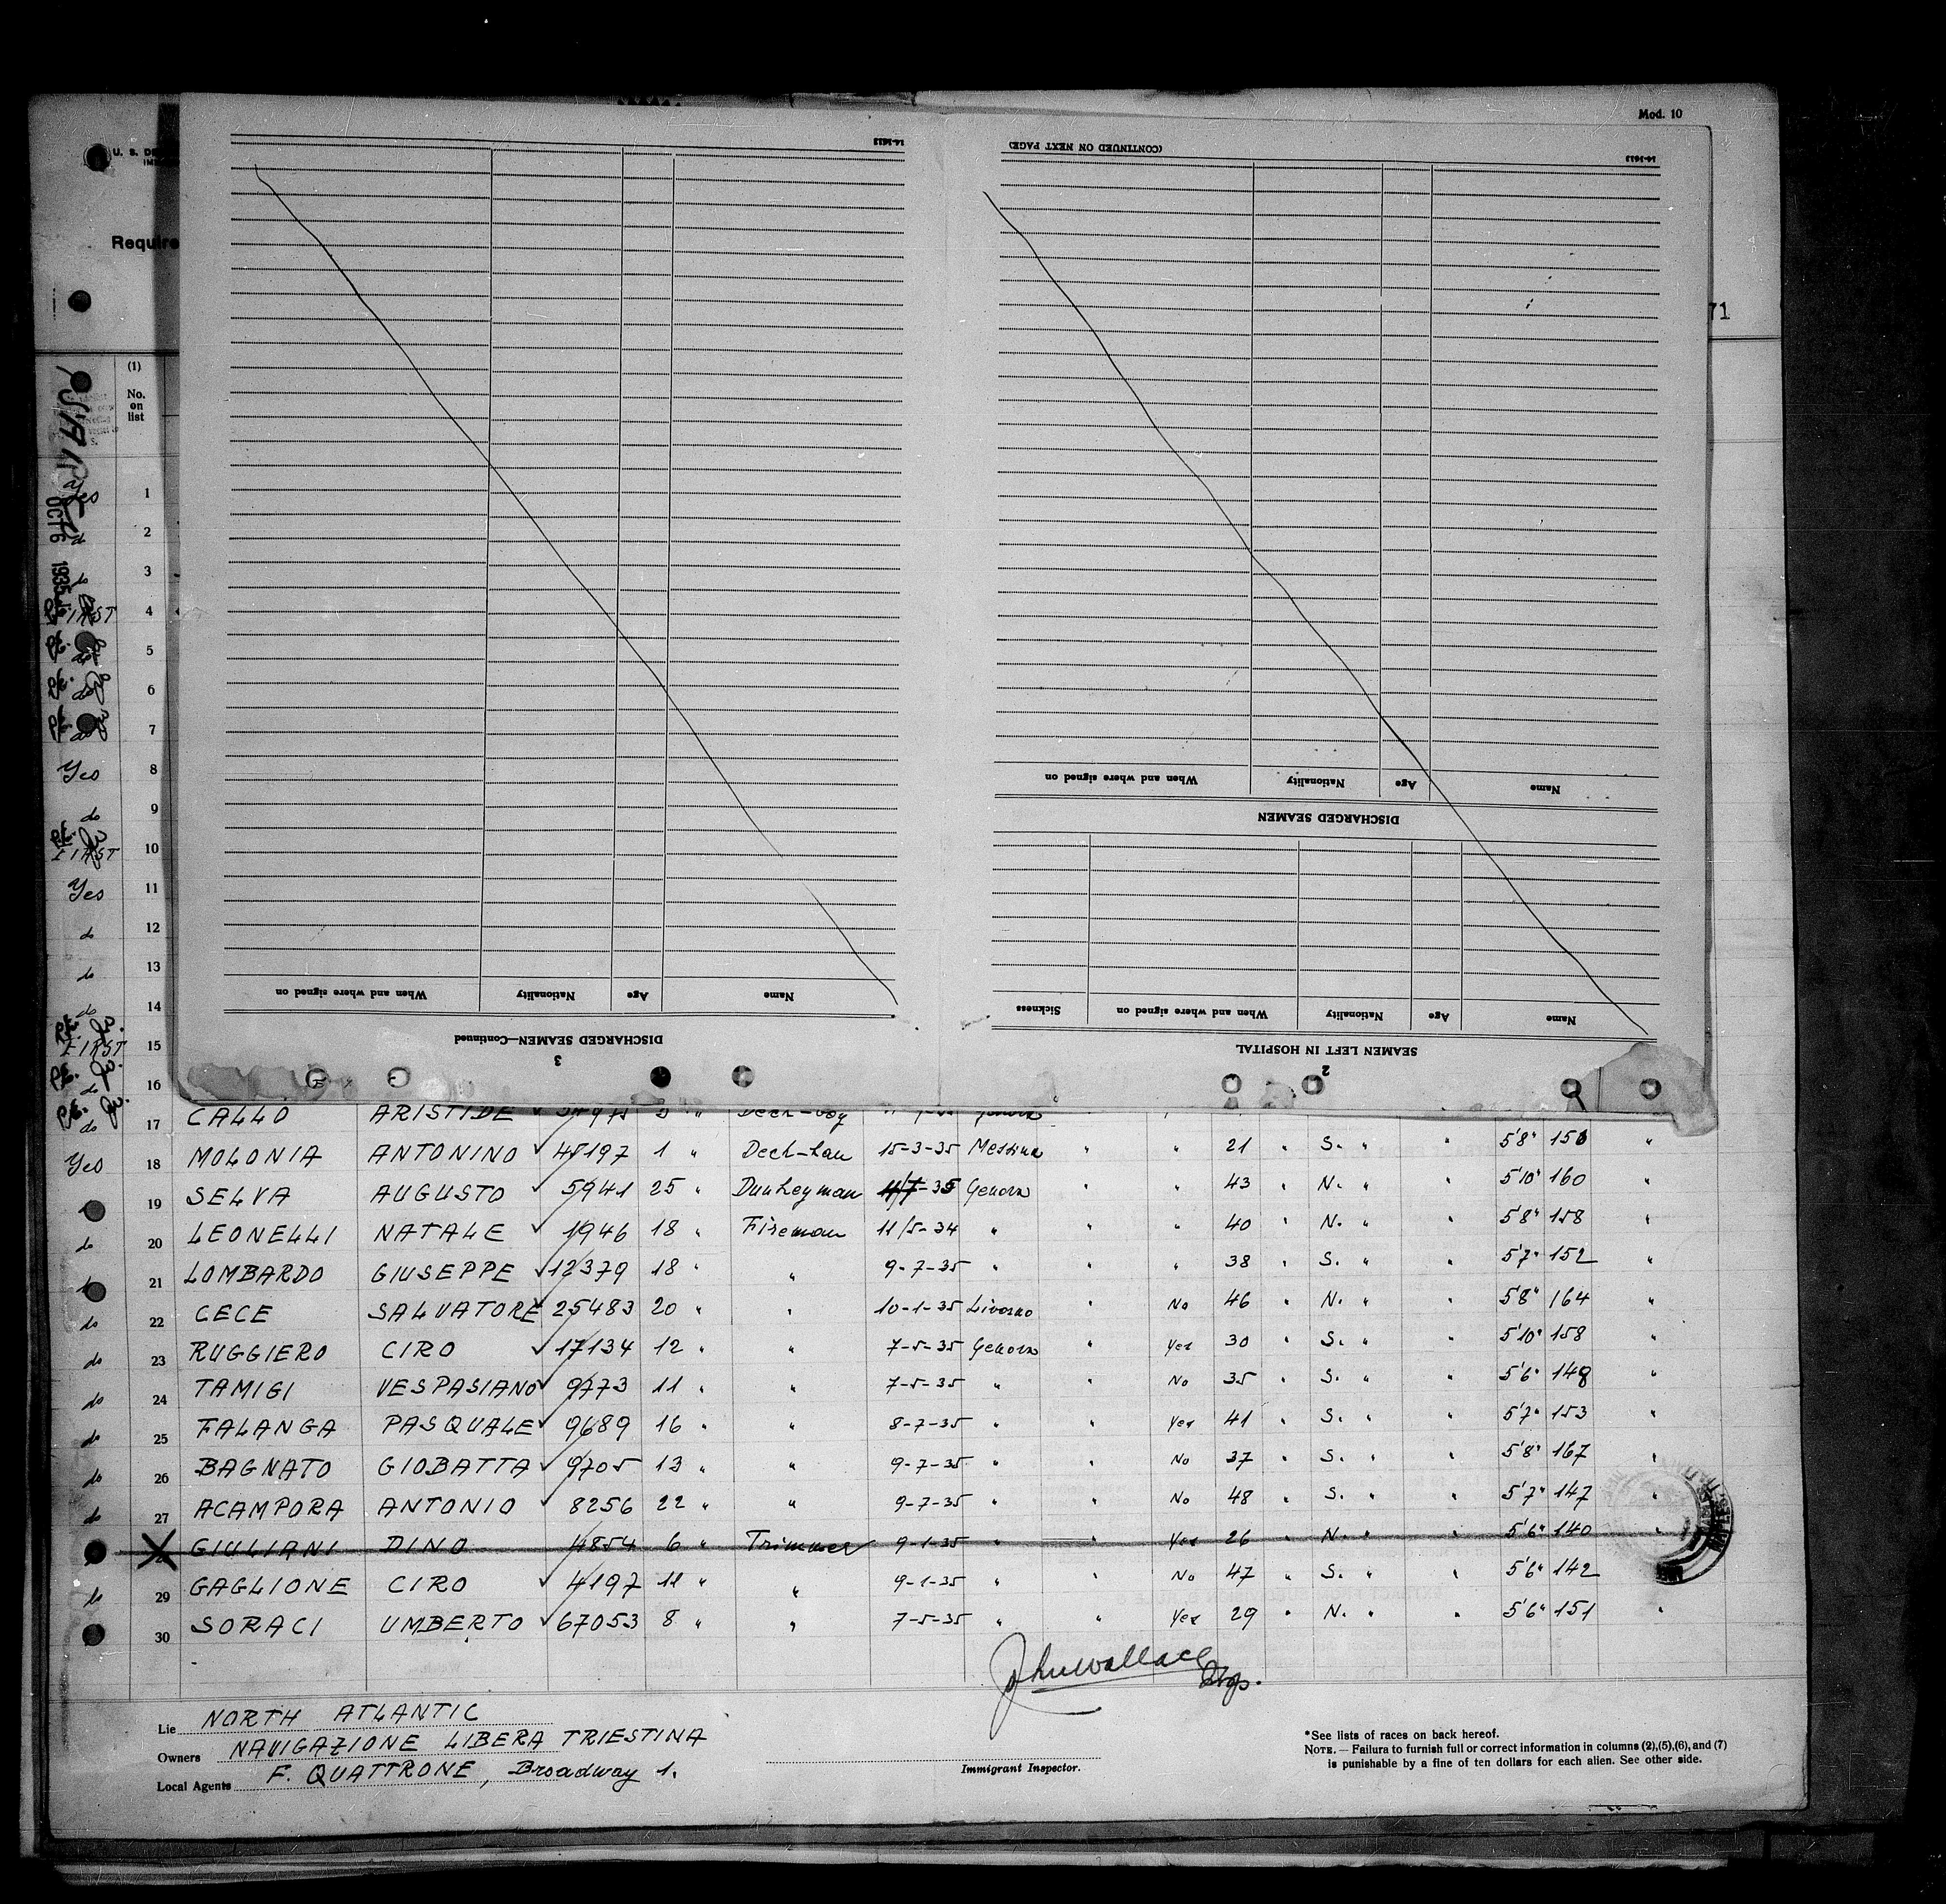 Mod. 10
(CONTINUED ON NEXT PAGE)
14-1613
14-1613
U. S. DE
Require
71
(1)
No.
on
list
OCT 6 1935
Name Age Nationality When and where signed on
DISCHARGED SEAMEN
Name Age Nationality When and where signed on Sickness
SEAMEN LEFT IN HOSPITAL
2
Name Age Nationality When and where signed on
DISCHARGED SEAMEN—Continued
3
1
do 2
do 3
FIRST 4
do 5
do 6
do 7
Yes 8
do 9
FIRST 10
Yes 11
do 12
do 13
do 14
FIRST 15
do 16
do 17 CALLO ARISTIDE ✓ " Deck-boy Genova
Yes 18 MOLONIA ANTONINO ✓ 45197 1 " 15-3-35 Messina " " 21 " S. " " 5'8" 150 "
19 SELVA AUGUSTO ✓ 5941 25 " 11/7-35 Genova " " 43 " N. " " 5'10" 160 "
do 20 LEONELLI NATALE ✓ 1946 18 " Fireman 11/5-34 " " " 40 " N. " " 5'8" 158 "
21 LOMBARDO GIUSEPPE ✓ 12379 18 " " 9-7-35 " " " 38 " S. " " 5'7" 152 "
do 22 CECE SALVATORE ✓ 25483 20 " " 10-1-35 Livorno " No 46 " N. " " 5'8" 164 "
do 23 RUGGIERO CIRO ✓ 17134 12 " " 7-5-35 Genova " Yes 30 " S. " " 5'10" 158 "
do 24 TAMIGI VESPASIANO ✓ 9773 11 " " 7-5-35 " No 35 " S. " " 5'6" 148 "
do 25 FALANGA PASQUALE ✓ 9689 16 " " 8-7-35 " " Yes 41 " S. " " 5'7" 153 "
do 26 BAGNATO GIOBATTA ✓ 9705 13 " " 9-7-35 " " No 37 " S. " " 5'8" 167 "
do 27 ACAMPORA ANTONIO ✓ 8256 22 " " 9-7-35 " " No 48 " S. " " 5'7" 147 "
GIULIANI DINO 4854 6 " Trimmer 9-1-35 " " Yes 26 " N. " " 5'6" 140 "
do 29 GAGLIONE CIRO ✓ 4197 11 " " 9-1-35 " " No 47 " S. " " 5'6" 142 "
30 SORACI UMBERTO ✓ 67053 8 " " 7-5-35 " " Yes 29 " N. " " 5'6" 151 "
John Wallace
Insp.
Lie NORTH ATLANTIC
Owners NAVIGAZIONE LIBERA TRIESTINA
Local Agents F. QUATTRONE, Broadway 1.
Immigrant Inspector.
*See lists of races on back hereof.
NOTE. — Failura to furnish full or correct information in columns (2),(5),(6), and (7)
is punishable by a fine of ten dollars for each alien. See other side.